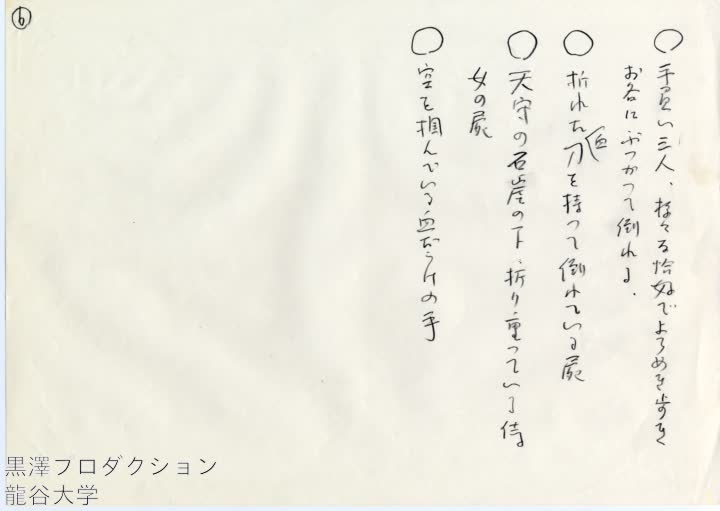 ⑥
○ 手負い三人、様々な恰好でよろめき歩き
お各にぶつかつて倒れる.
○ 折れた血刀を持つて倒れている屍
○ 天守の石崖の下、折り重つている侍
女の屍
○ 空を掴んでいる血だらけの手
黒澤プロダクション
龍谷大学